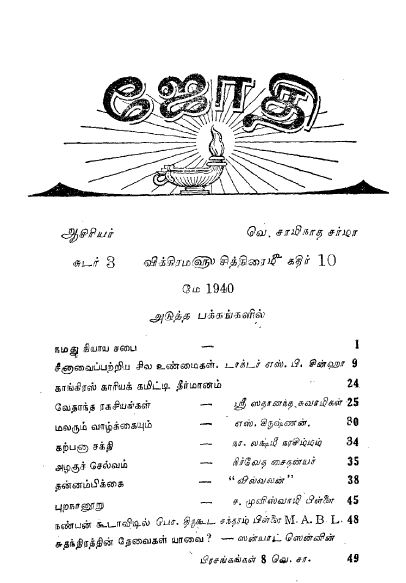 ஜோதி
ஆசிரியர் வெ. சாமிநாத சர்மா
சுடர் 3 விக்கிரம௵ சித்திரைமீ கதிர் 10
மே 1940
அடுத்த பக்கங்களில்
நமது நியாய சபை — 1
சீனாவைப்பற்றிய சில உண்மைகள். டாக்டர் எஸ். பி. சின்ஹா 9
காங்கிரஸ் காரியக் கமிட்டி தீர்மானம் 24
வேதாந்த ரகசியங்கள் — ஸ்ரீ ஸதானந்த சுவாமிகள் 25
மலரும் வாழ்க்கையும் — எஸ். கிருஷ்ணன். 30
கற்பனா சக்தி — நா. லக்ஷ்மி நரசிம்மம் 34
அழகுச் செல்வம் — நிர்வேத சைதன்யர் 35
தன்னம்பிக்கை — “வில்வலன்” 38
புறநானூறு — ச. முனிஸ்வாமி பிள்ளை 45
நண்பன் கூடாவிடில் பொ. திரிகூட சுந்தரம் பிள்ளை M. A. B. L. 48
சுதந்திரத்தின் தேவைகள் யாவை? — ஸன்யாட் ஸென்னின்
பிரசங்கங்கள் 8 வெ. சா. 49